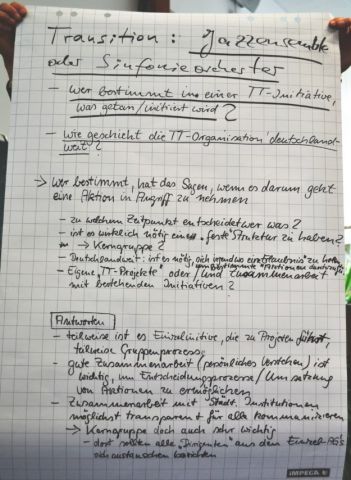 Transition: Jazzensemble
oder Sinfonieorchester
- wer bestimmt in einer TT-Initiative,
was getan/initiiert wird?
- wie geschieht die TT-Organisation deutschland-
weit?
→ wer bestimmt, hat das Sagen, wenn es darum geht
eine Aktion in Angriff zu nehmen
- zu welchem Zeitpunkt entscheidet wer was?
- ist es wirklich nötig eine "feste" Struktur zu haben?
→ Kerngruppe?
- Deutschlandweit: ist es nötig, sich irgendwo eine Erlaubnis zu holen
um bestimmte Aktionen
- Eigene "TT-Projekte" oder/und Zusammenarbeit
mit bestehenden Initiativen?
Antworten
- teilweise ist es Einzelinitive, die zu Projekten führt,
teilweise Gruppenprozess
- gute Zusammenarbeit (persönliches Verstehen) ist
wichtig, um Entscheidungsprozesse/Umsetzung
von Aktionen zu ermöglichen
- Zusammenarbeit mit "Städt. Institutionen
möglichst transparent für alle kommunizieren
→ Kerngruppe doch auch sehr wichtig
- dort sollten alle "Dirigenten" aus den Einzel-AG's
sich austauschen
IMPEGA